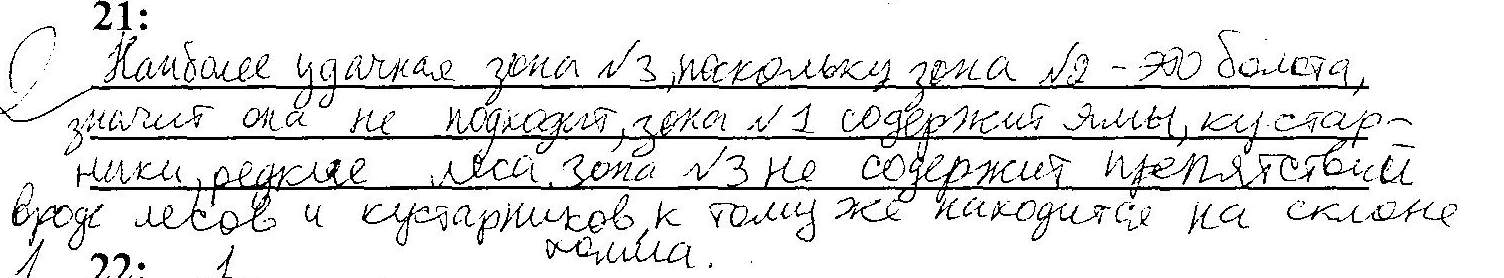 21:
2 Наиболее удачная зона №3, поскольку зона №2 – это болота,
значит она не подходит, зона №1 содержит ямы, кустар-
ники, редкие леса. зона №3 не содержит препятствий
вроде лесов и кустарников, к тому же находится на склоне
холма.
1 22: 1